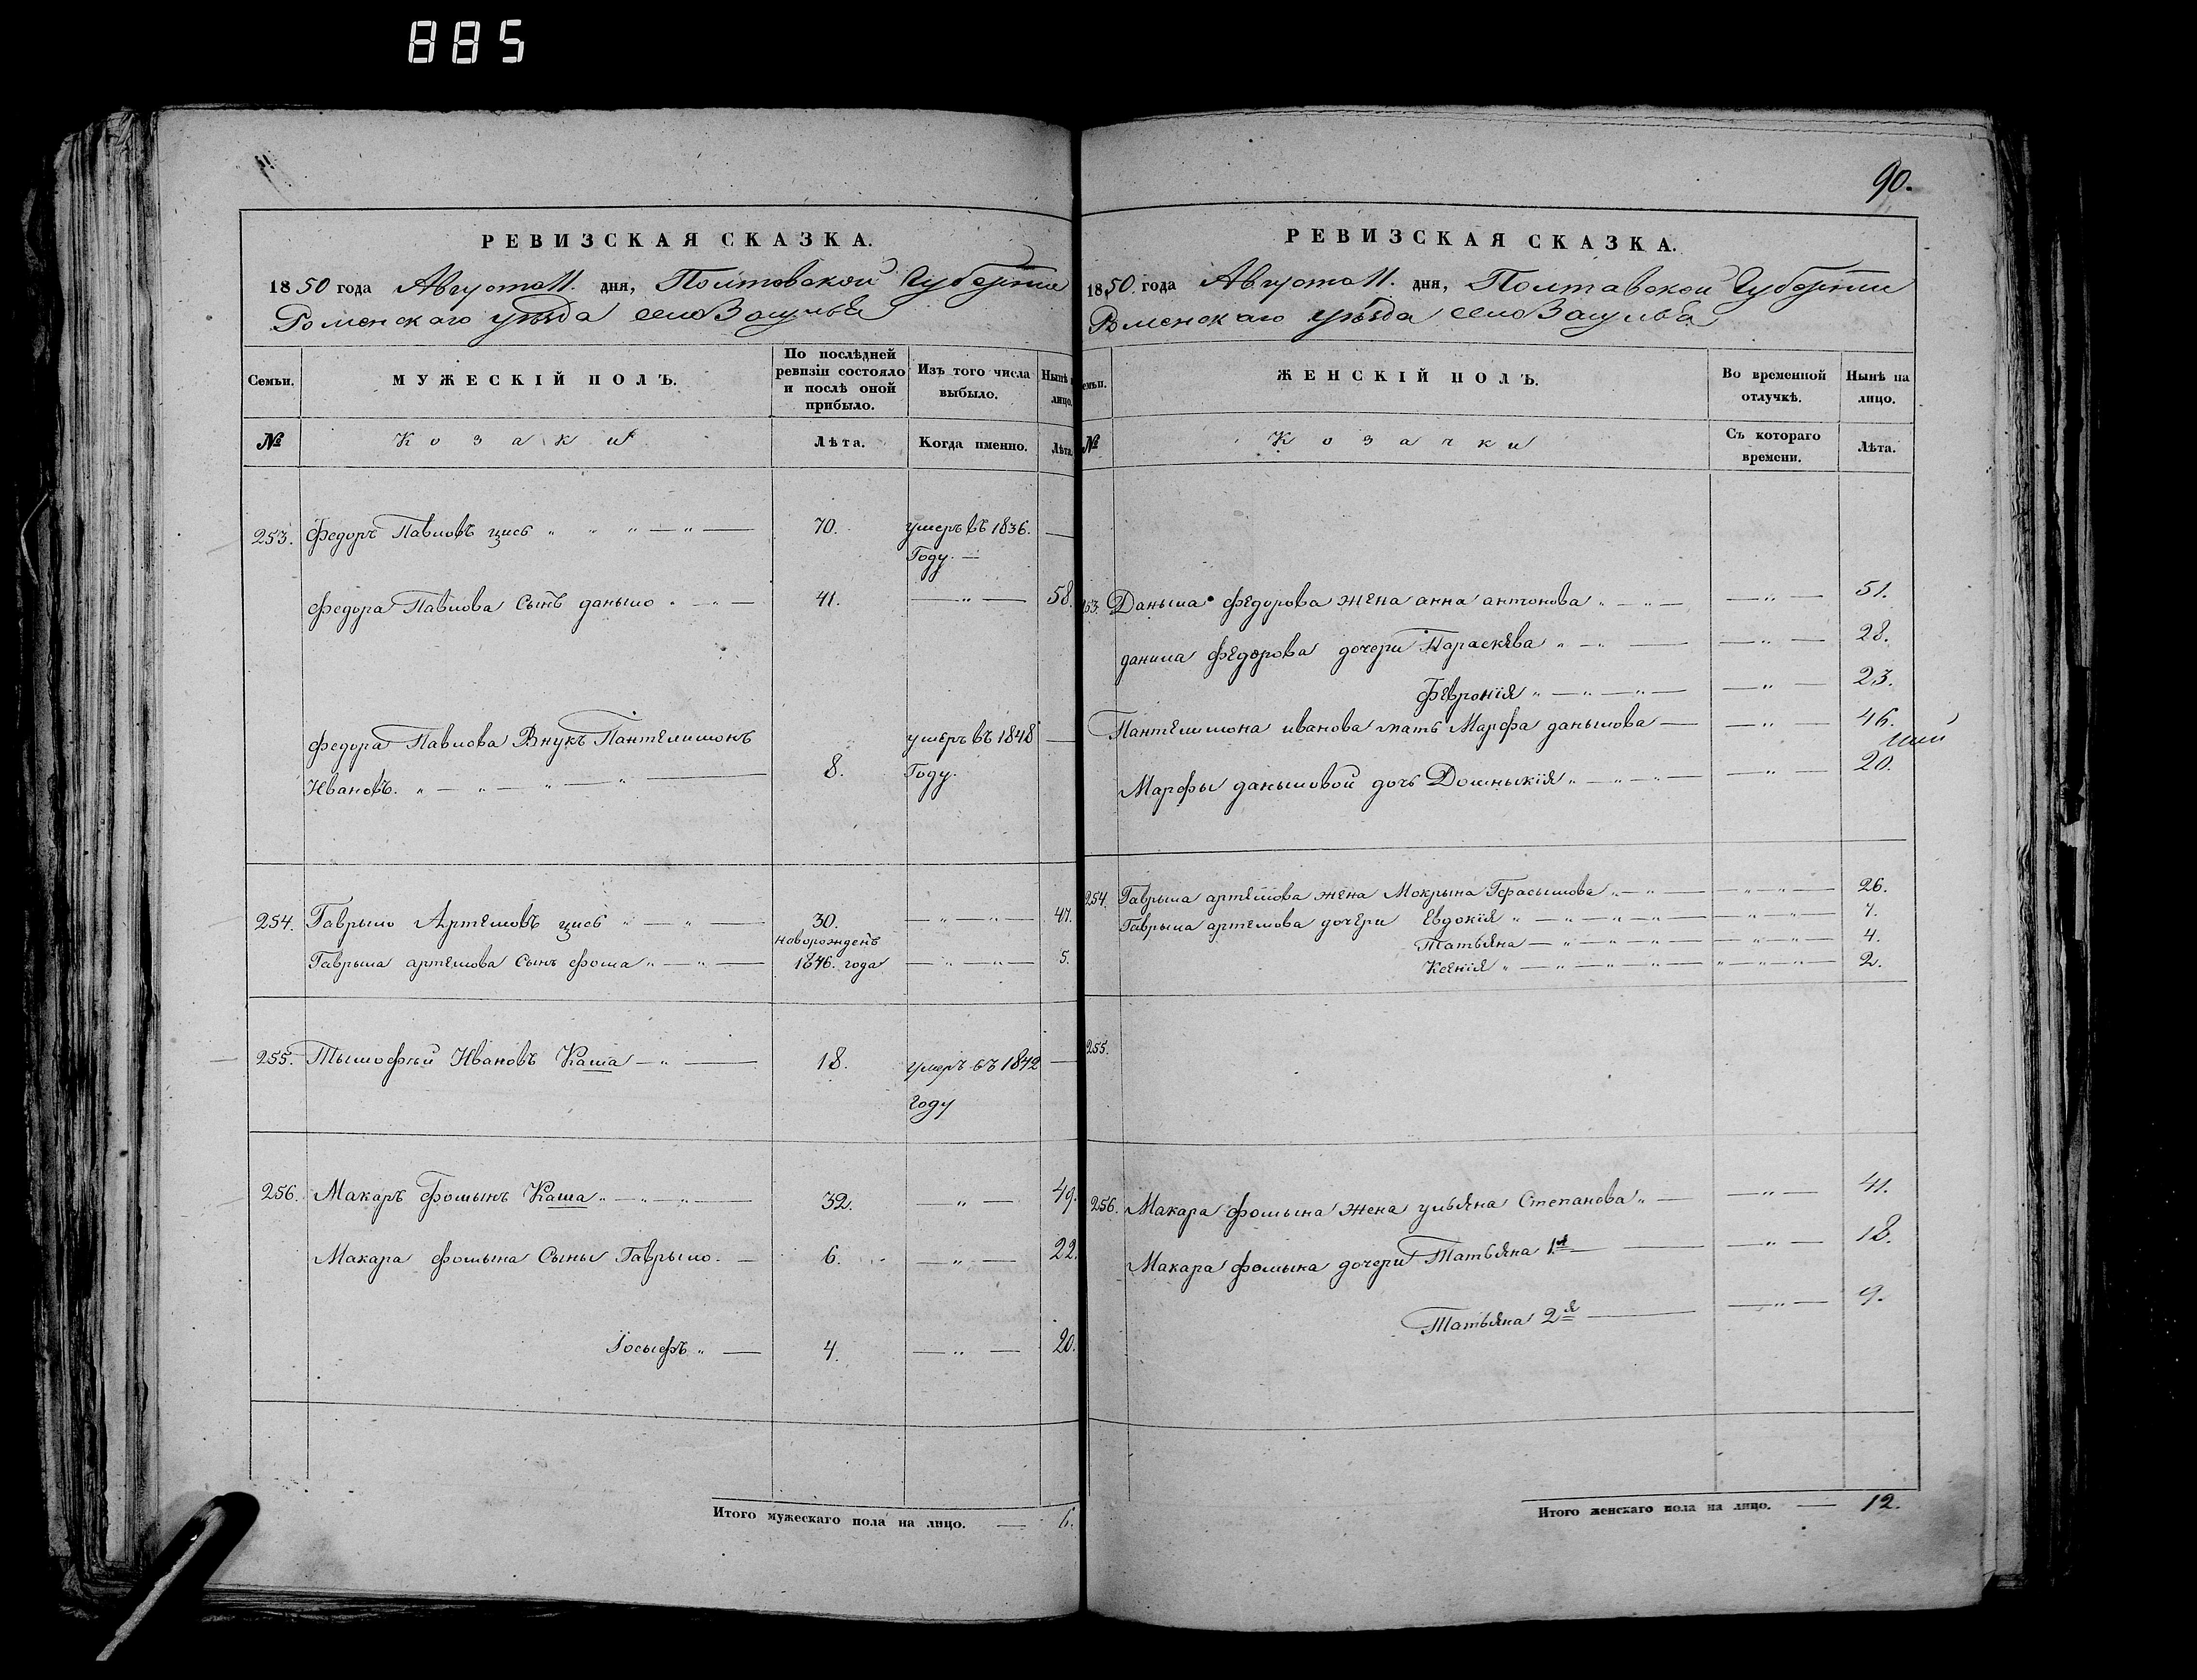 885
90.
РЕВИЗСКАЯ СКАЗКА.
1850 года Августа 11. дня, Полтавской Губернии
Роменскаго уѣзда село Засулье
Семьи.
МУЖЕСКІЙ ПОЛЪ.
По послѣдней ревизіи состояло и послѣ оной прибыло.
Изъ того числа выбыло.
Нынѣ на лицо.
№
Козаки
Лѣта.
Когда именно.
Лѣта.
253. Федоръ Павловъ цись 70. умеръ въ 1836.
Году.
Федора Павлова Сынъ даныло 41. 58.
Федора Павлова Внукъ Пантелимонъ умеръ въ 1848
Ивановъ. 8. Году.
254. Гаврыло Артемовъ цись 30. 47.
новорожденъ
Гаврыла артемова Сынъ фома 1846. года 5.
255. Тымофѣй Ивановъ Каша 18. умеръ въ 1842
году
256. Макаръ Фомынъ Каша 32. 49.
Макара фомына Сыны Гаврыло. 6. 22.
Іосыфъ 4. 20.
Итого мужескаго пола на лицо. 6.
РЕВИЗСКАЯ СКАЗКА.
1850. года Августа 11. дня, Полтавской Губернии
Роменскаго уѣзда село Засулье
Семьи.
ЖЕНСКІЙ ПОЛЪ.
Во временной отлучкѣ.
Нынѣ на лицо.
№
Козачки
Съ котораго времени.
Лѣта.
253. Даныла федорова жена анна антонова 51.
данила федорова дочери Параскева 28.
Февронія 23.
Пантелимона иванова мать Марфа данылова 46.
Марфы даныловой дочь Домныкія 20.
254. Гаврыла артемова жена Мокрына Герасымова 26.
Гаврыла артемова дочери Евдокія 7.
Татьяна 4.
Ксенія 2.
255.
256. Макара фомына жена ульяна Степанова 41.
Макара фомына дочери Татьяна 1я 18.
Татьяна 2я 9.
Итого женскаго пола на лицо. 12.